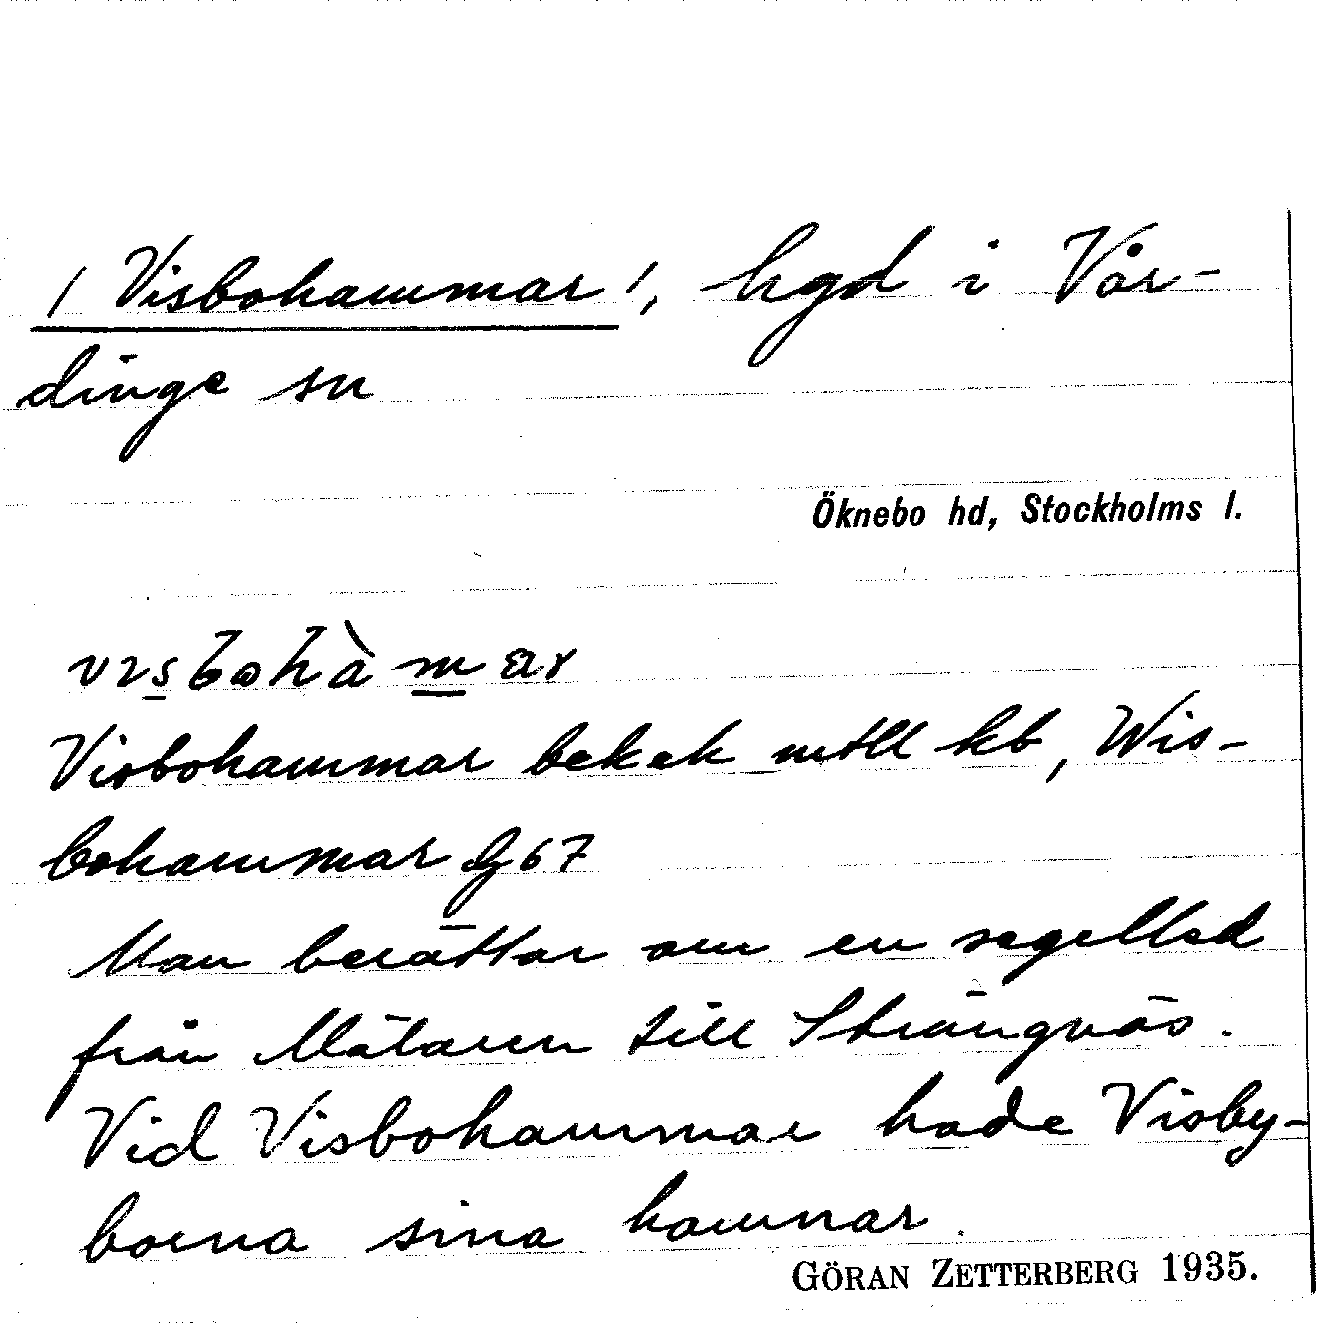 / Visbohammar /, hgd i Vår-
dinge sn
Öknebo hd, Stockholms l.
Visbohammar bekek mtll kb, Wis-
bohammar Gg 67
Man berättar om en segelled
från Mälaren till Strängnäs.
Vid Visbohammar hade Visby-
borna sina hamnar.
GÖRAN ZETTERBERG 1935.